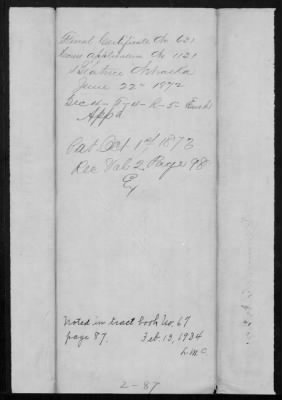 Final Certificate No 621
Cons Application No 1121
Beatrice Nebraska
June 22nd 1872
Sec 4 - T-4- R-5- East
App'd
Pat Oct 1st 1873
Rec Vol 2 Page 98
Ex
Noted in tract book No. 67
page 87. Feb. 13, 1934
L.M.C.
2-87